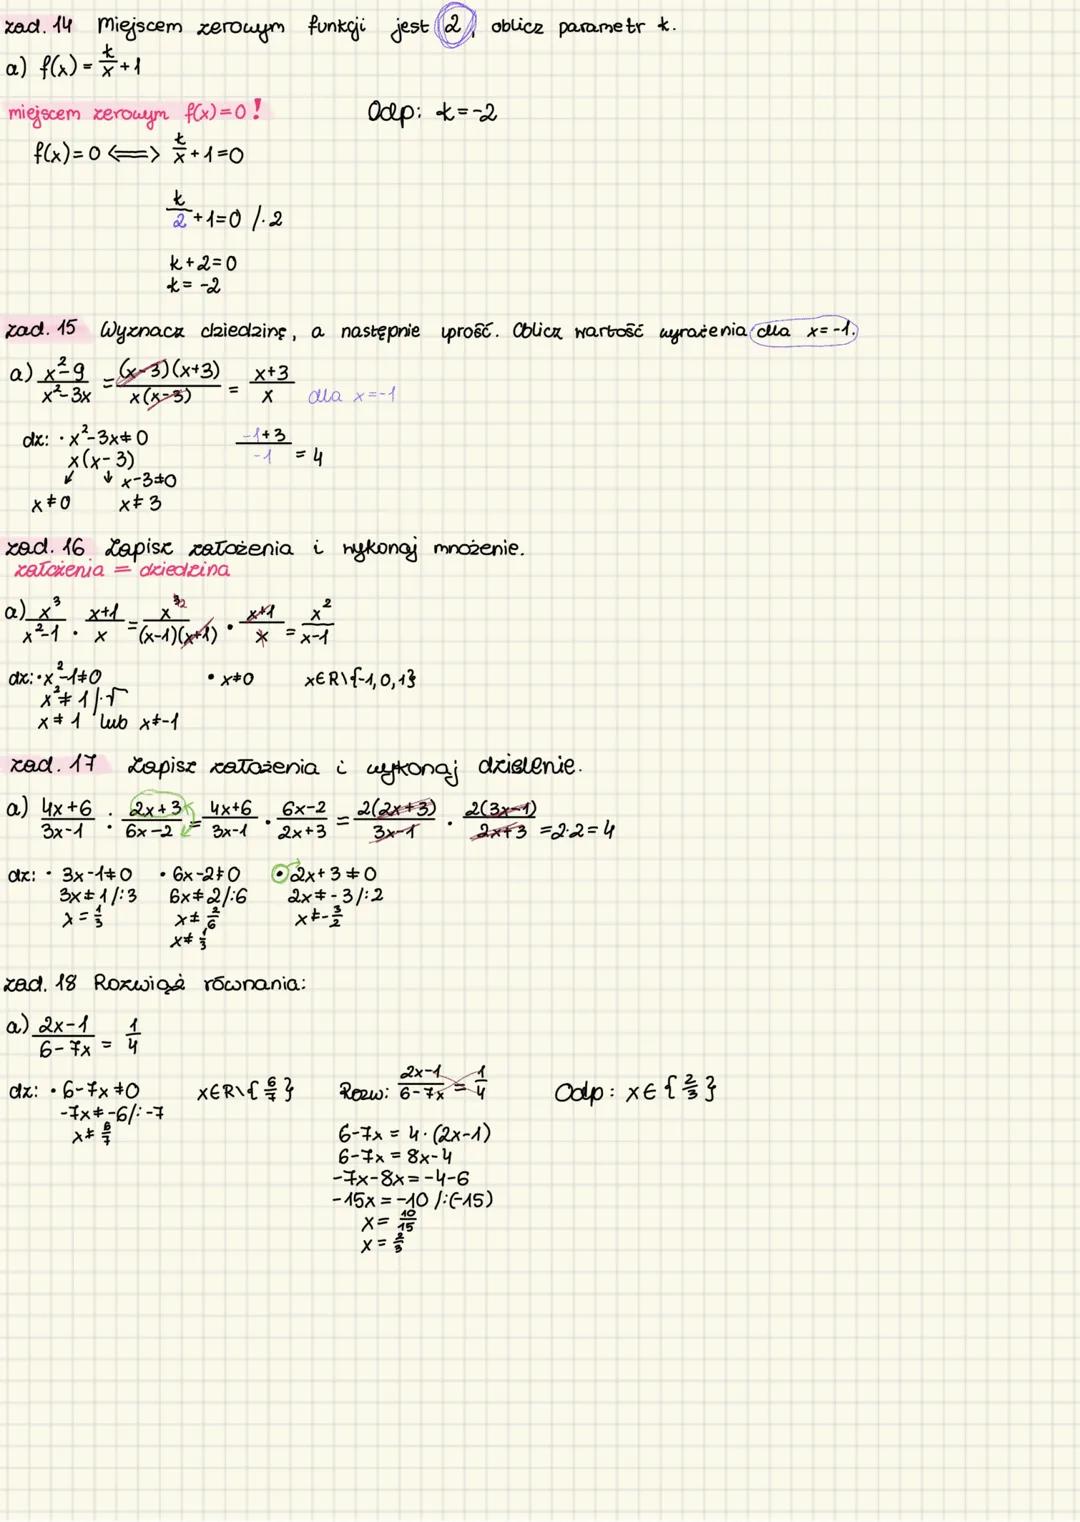 zad. 14 Miejscem zerowym funkcji jest 2, oblicz parametr k.
a) f(x) = k/x + 1
miejscem zerowym f(x)=0!
Odp: k=-2
f(x)=0 <=> k/x + 1 = 0
k/2 + 1 = 0 /·2
k+2=0
k=-2
zad. 15 Wyznacz dziedzinę, a następnie uprość. Oblicz wartość wyrażenia dla x=-1.
a) x²-9 / x²-3x = (x-3)(x+3) / x(x-3) = x+3 / x dla x=-1
dz: · x²-3x≠0
x(x-3)
↙ ↓ x-3≠0
x≠0 x≠3
-1+3 / -1 = 4
zad. 16 Zapisz założenia i wykonaj mnożenie.
założenia = dziedzina
a) x³ / x²-1 · x+1 / x = x³² / (x-1)(x+1) · x+1 / x = x² / x-1
dz: · x²-1≠0 • x≠0 x∈R\{-1,0,1}
x²≠1 /·√
x≠1 lub x≠-1
zad. 17 Zapisz założenia i wykonaj dzielenie.
a) 4x+6 / 3x-1 : 2x+3 / 6x-2 = 4x+6 / 3x-1 · 6x-2 / 2x+3 = 2(2x+3) / 3x-1 · 2(3x-1) / 2x+3 = 2·2 = 4
dz: · 3x-1≠0 · 6x-2≠0 • 2x+3≠0
3x≠1 /:3 6x≠2 /:6 2x≠-3 /:2
x=1/3 x≠2/6 x≠-3/2
x≠1/3
zad. 18 Rozwiąż równania:
a) 2x-1 / 6-7x = 1/4
dz: · 6-7x≠0 x∈R\{6/7}
-7x≠-6 /:-7
x≠6/7
Rozw: 2x-1 / 6-7x = 1/4
6-7x = 4·(2x-1)
6-7x = 8x-4
-7x-8x = -4-6
-15x = -10 /:(-15)
x = 10/15
x = 2/3
Odp: x∈{2/3}